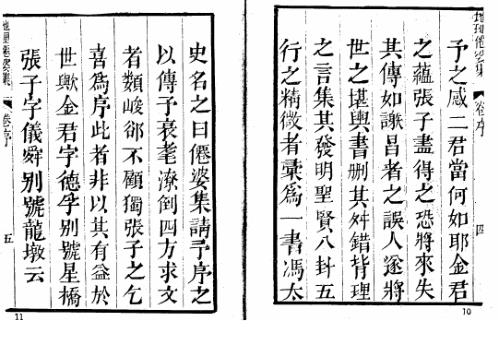 地理僊婆集
卷序
四
予之感二君當何如耶金君
之蘊張子盡得之恐將來失
其傳如謝昌者之誤人遂將
世之堪輿書刪其舛錯背理
之言集其發明聖賢八卦五
行之精微者彚爲一書馮太
10
史名之曰僊婆集請予序之
以傳予衰耄潦倒四方求文
者類峻郤不顧獨張子之乞
喜爲序此者非以其有益於
世歟金君字德孚别號星橋
張子字儀舜别號龍墩云
地理僊婆集
卷序
五
11